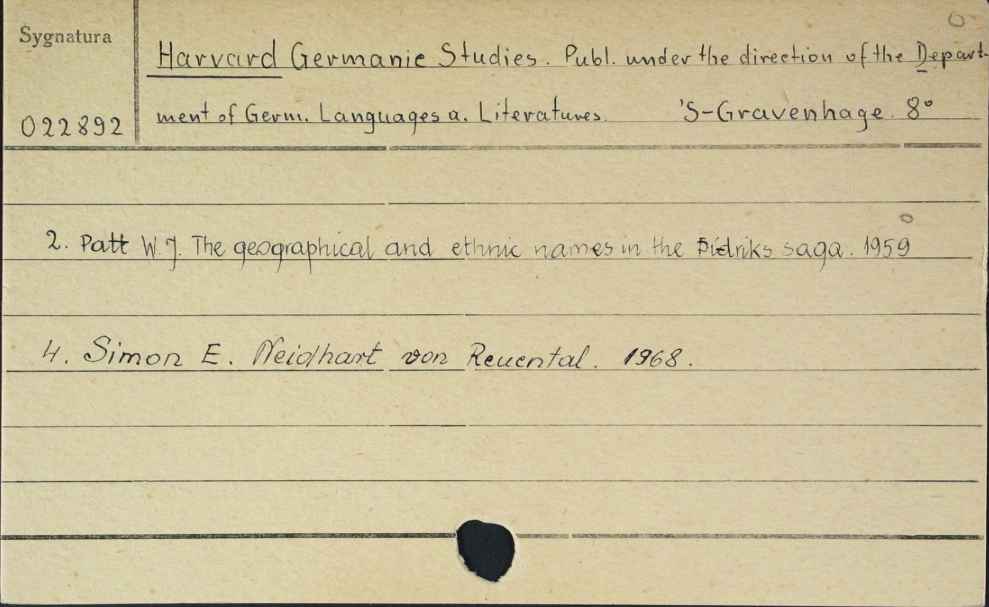 Sygnatura
Harvard Germanic Studies. Publ. under the direction of the Depart-
022892
ment of Germ. Languages a. Literatures. 'S-Gravenhage. 8°
2. Patt W. J. The geographical and ethnic names in the Þídriks saga. 1959
4. Simon E. Neidhart von Reuental. 1968.